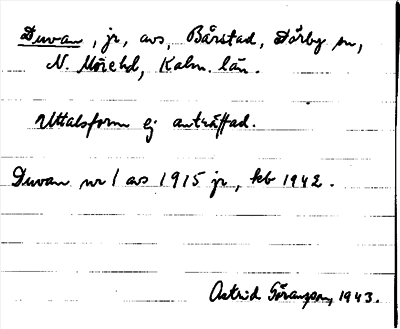 Duvan, jr, avs, Bårstad, Dörby sn,
N. Möre hd, Kalm. län.
Uttalsform ej anträffad.
Duvan nr 1 avs 1915 jr, kb 1942.
Astrid Göranzon, 1943.